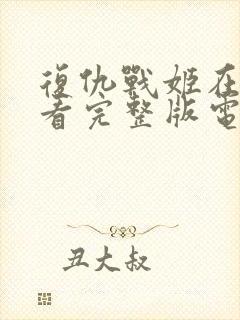 復仇戰姬在
看完整版電
丑大叔